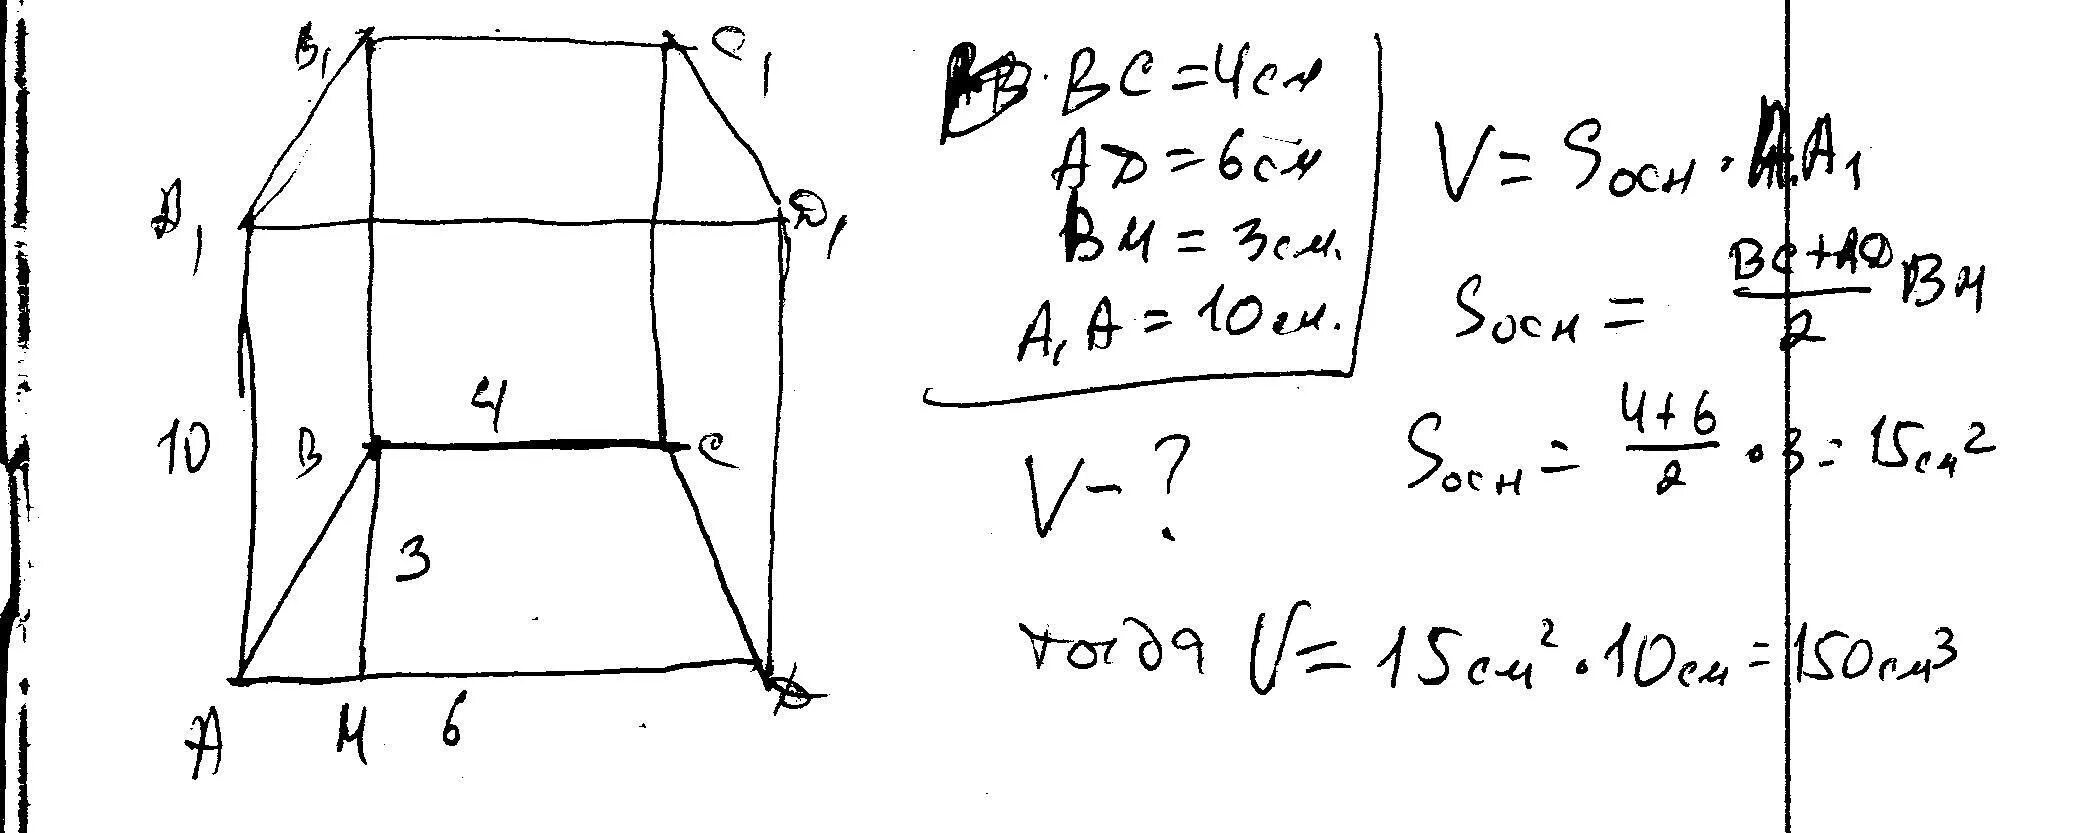 B₁ C₁
A₁ D₁
10 B 4 C
3
A M 6 D
BC = 4см
AD = 6см
BM = 3см.
A₁A = 10см.
V - ?
V = Sосн · AA₁
Sосн = (BC+AD)/2 BM
Sосн = (4+6)/2 · 3 = 15см²
тогда V = 15см² · 10см = 150см³